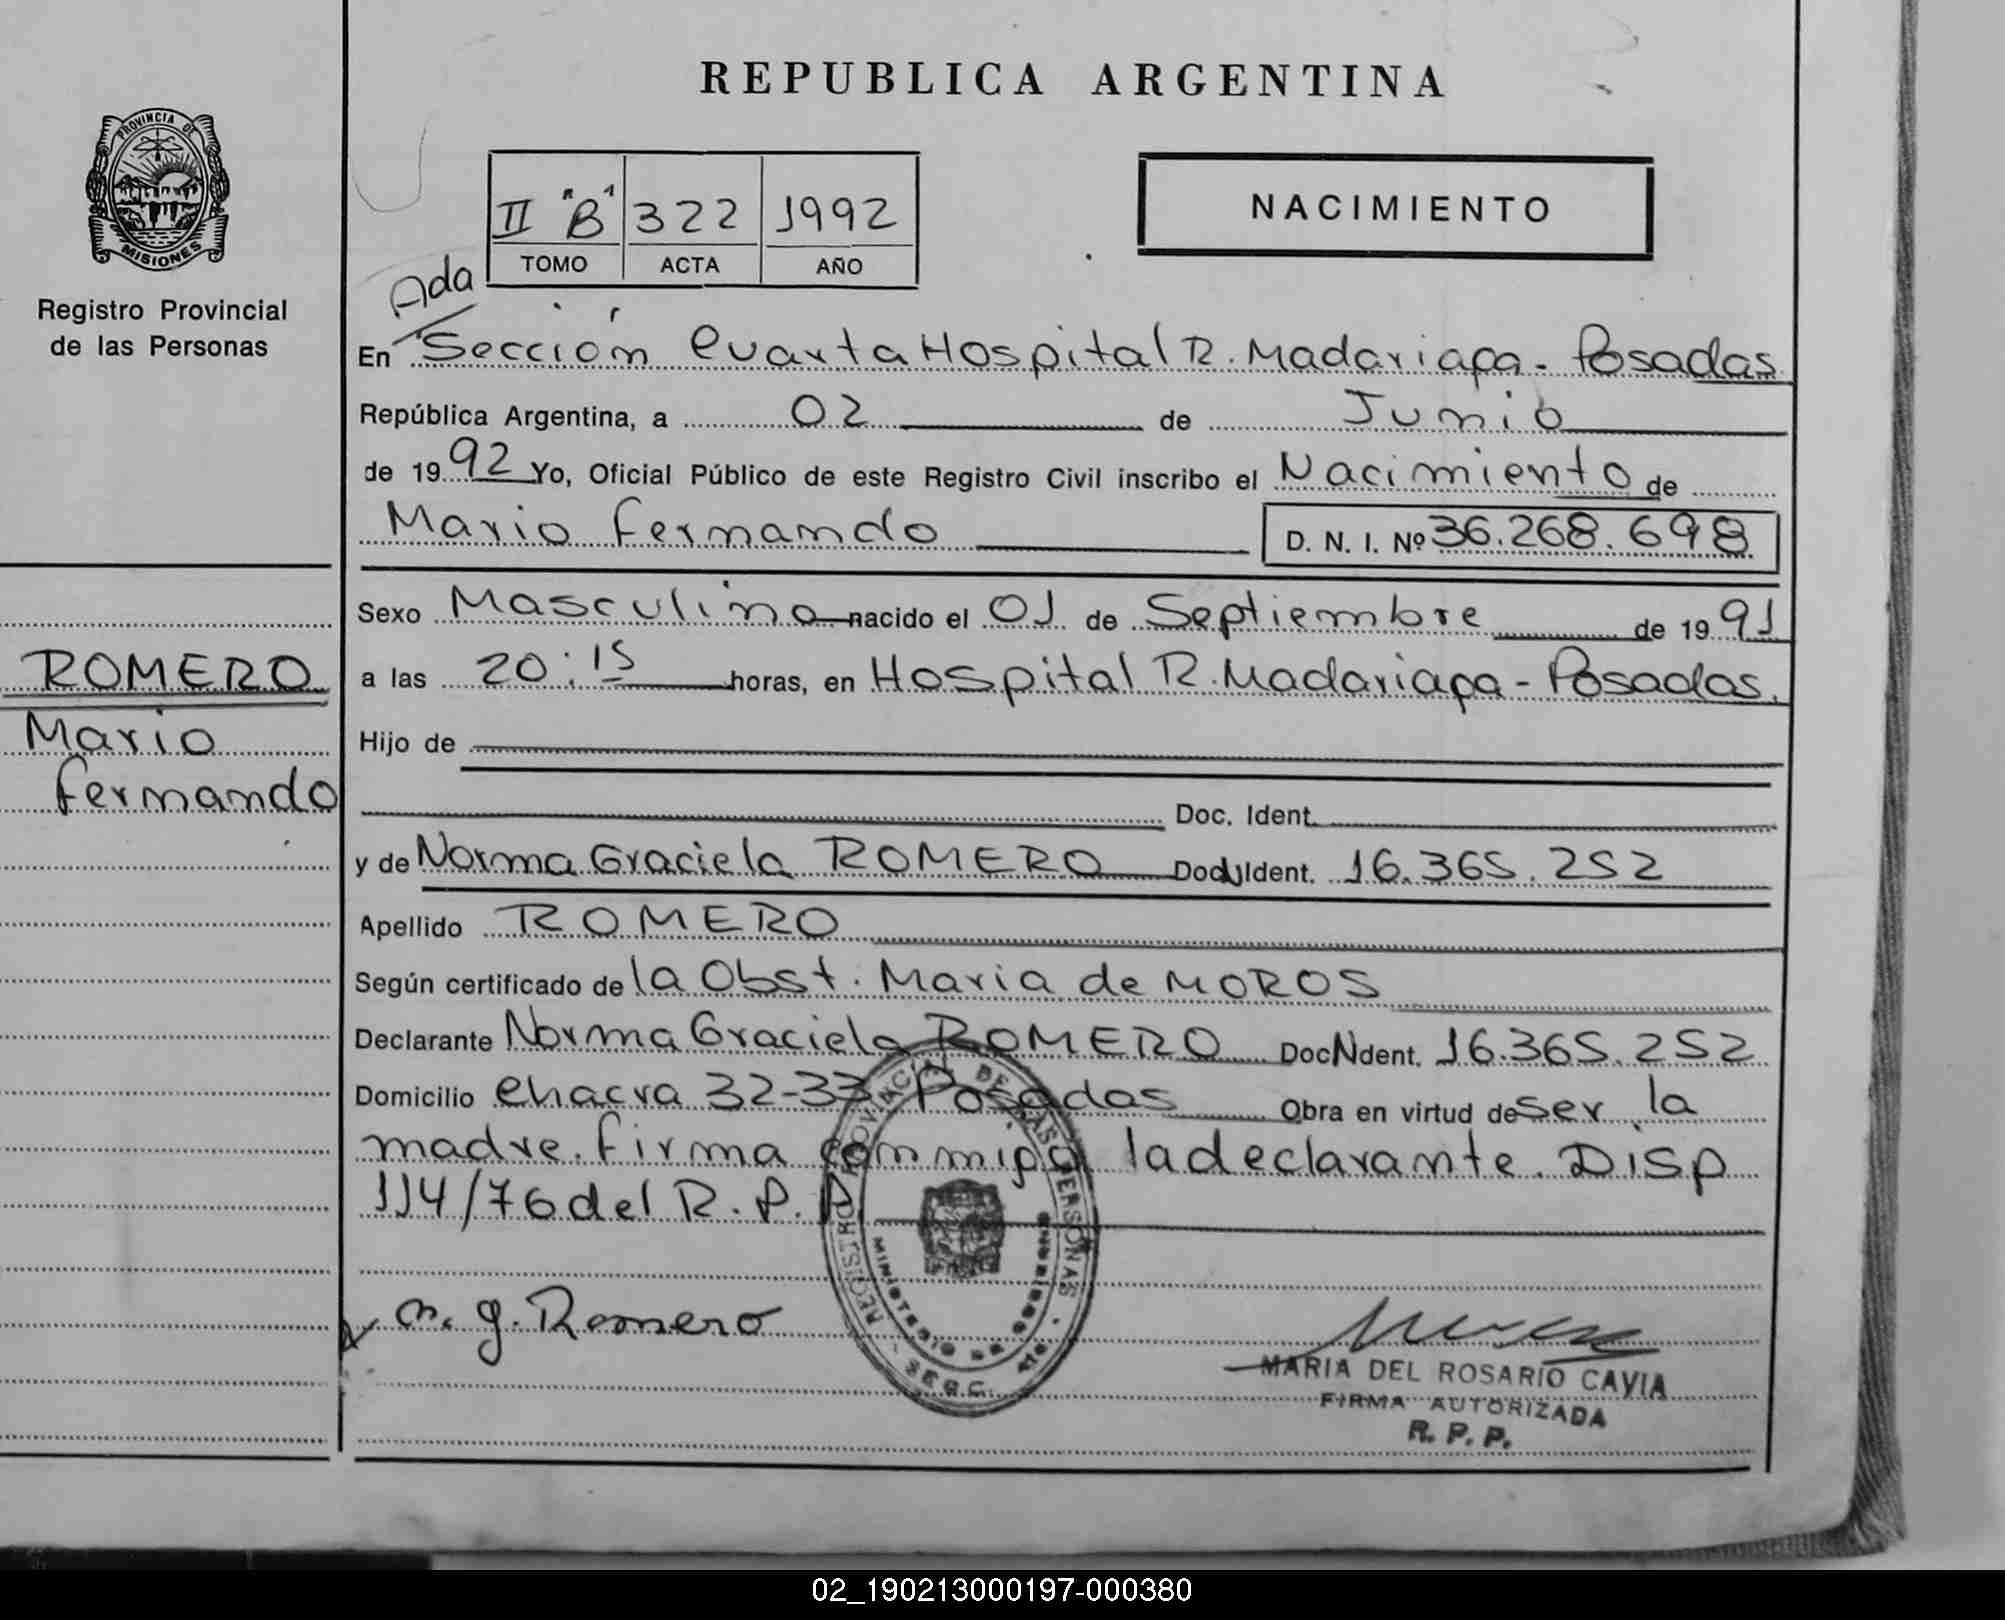 REPUBLICA ARGENTINA
PROVINCIA DE
MISIONES
Registro Provincial
de las Personas
II "B" 322 1992
TOMO ACTA AÑO
NACIMIENTO
Ada
En Sección Cuarta Hospital R. Madariaga - Posadas
República Argentina, a 02 de Junio
de 1992 Yo, Oficial Público de este Registro Civil inscribo el Nacimiento de
Mario Fernando D. N. I. Nº 36.268.698
Sexo Masculino nacido el 01 de Septiembre de 1991
ROMERO
Mario
Fernando
a las 20:15 horas, en Hospital R. Madariaga - Posadas.
Hijo de
Doc. Ident.
y de Norma Graciela ROMERO Doc Ident. 16.365.252
Apellido ROMERO
Según certificado de la Obst. Maria de MOROS
Declarante Norma Graciela ROMERO Doc Ident. 16.365.252
Domicilio Chacra 32-33 Posadas Obra en virtud de ser la
madre. Firma conmigo la declarante. Disp
114/76 del R. P. P.
REGISTRO PROVINCIAL DE LAS PERSONAS
MINISTERIO DE GOBIERNO
N. G. Romero
MARIA DEL ROSARIO CAVIA
FIRMA AUTORIZADA
R. P. P.
02_190213000197-000380